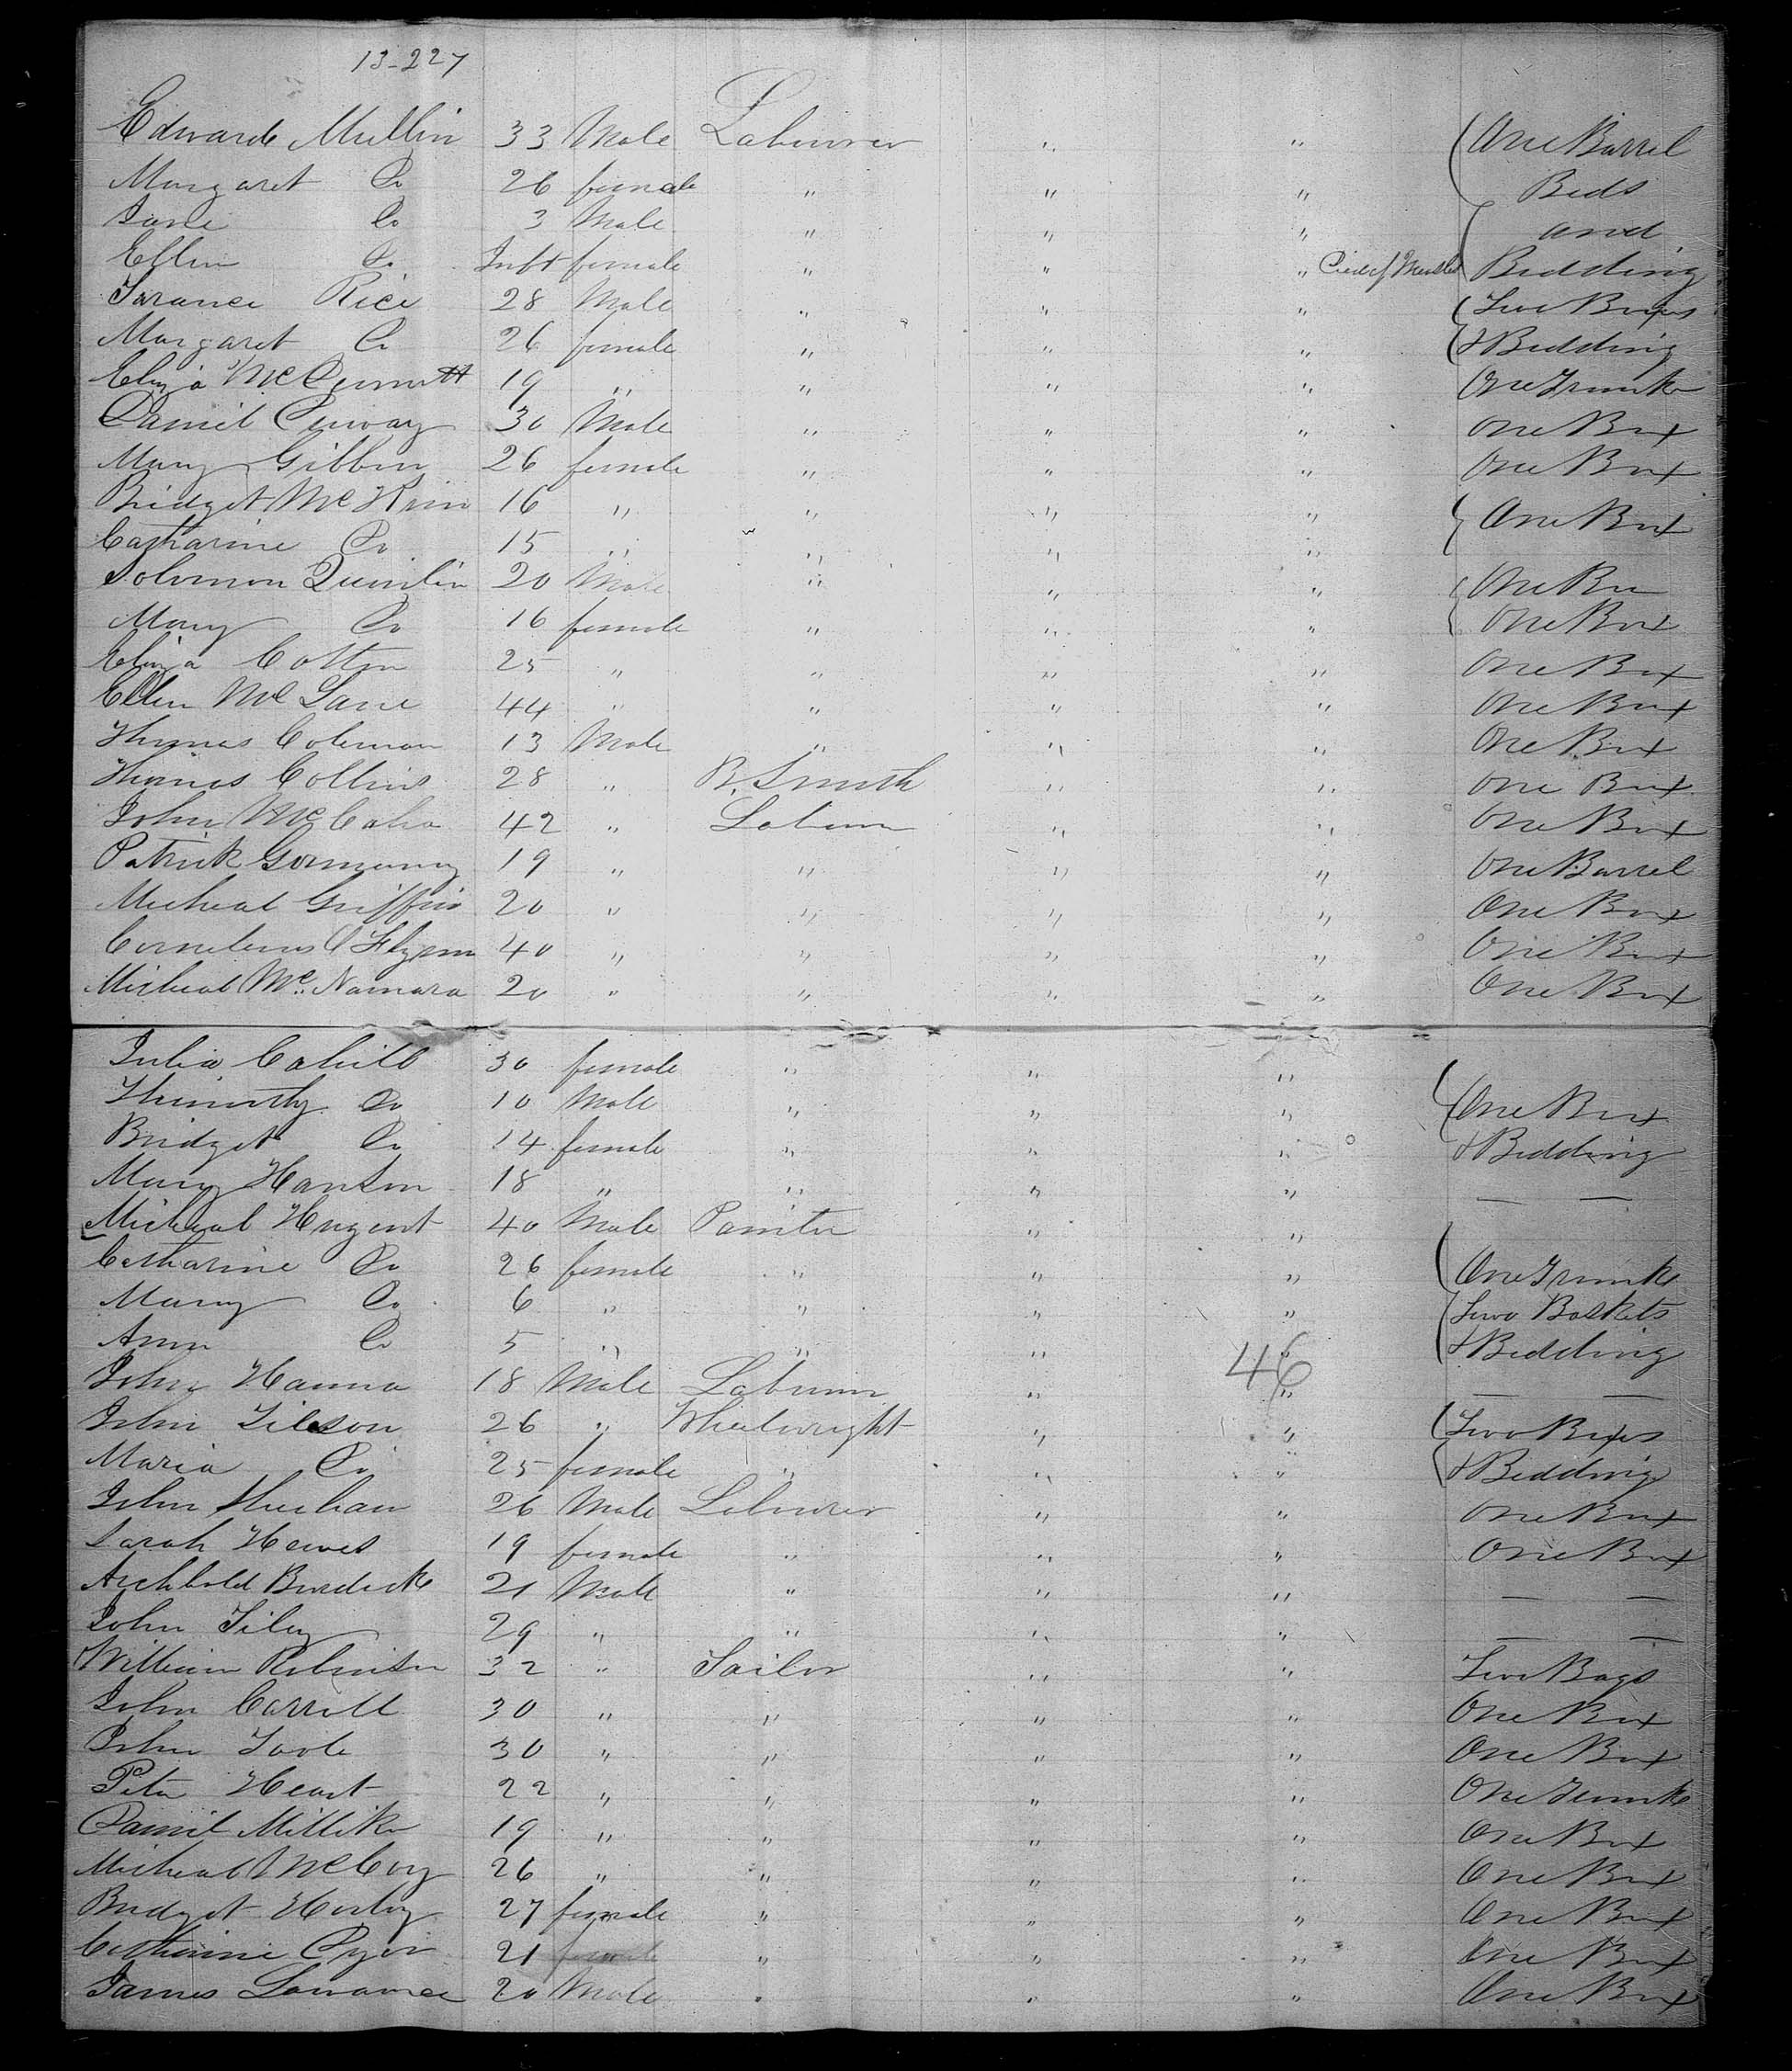 13-227
Edward Mullin 33 Male Labourer " " One Barrel
Margaret Do 26 female " " " Beds
Jane Do 3 Male " " " and
Ellen Do Inft female " " " Died of Measles Bedding
Tarance Rice 28 Male " " " Two Boxes
Margaret Do 26 female " " " & Bedding
Eliza McDermott 19 " " " " One Trunk
Daniel Conway 30 Male " " " One Box
Mary Gibbon 26 female " " " One Box
Bridget McKim 16 " " " " One Box
Catharine Do 15 " " " "
Solomon Quinlin 20 Male " " " One Box
Mary Do 16 female " " " One Box
Eliza Cotton 25 " " " " One Box
Ellen McLane 44 " " " " One Box
Thomas Coleman 13 Male " " " One Box
Thomas Collins 28 " B. Smith " " One Box
John 42 " Labourer " " One Box
Patrick 19 " " " " One Barrel
Micheal Griffin 20 " " " " One Box
Cornelius O Flynn 40 " " " " One Box
Micheal Mc Namara 20 " " " " One Box
Julia Cahill 30 female " " "
Thimothy Do 10 Male " " " One Box
Bridget Do 14 female " " " & Bedding
Mary Hanson 18 " " " " — —
Micheal Hugent 40 Male Painter " "
Catharine Do 26 female " " " One Trunk
Mary Do 6 " " " " Two Baskets
Ann Do 5 " " " " & Bedding
46
John Hanna 18 Male Labourer " " — —
John Tilson 26 " Wheelwright " " Two Boxes
Maria Do 25 female " " " & Bedding
John Sheehan 26 Male Labourer " " One Box
Sarah Hewes 19 female " " " One Box
Archbold Burdick 21 Male " " " — —
John Tiley 29 " " " " — —
William Robinson 32 " Sailor " " Two Bags
John Carroll 30 " " " " One Box
John Toole 30 " " " " One Box
Peter Heart 22 " " " " One Trunk
Daniel Millike 19 " " " " One Box
Micheal McCoy 26 " " " " One Box
Bridget 27 female " " " One Box
Catherine 21 female " " " One Box
James Lowance 20 Male " " " One Box